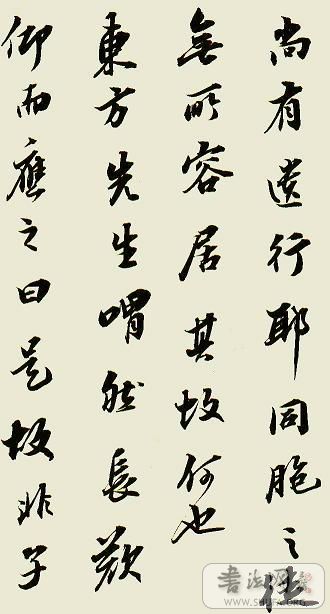 尚有遺行耶同胞之徒
無所容居其故何也
東方先生喟然長歎
仰而應之曰是故非子